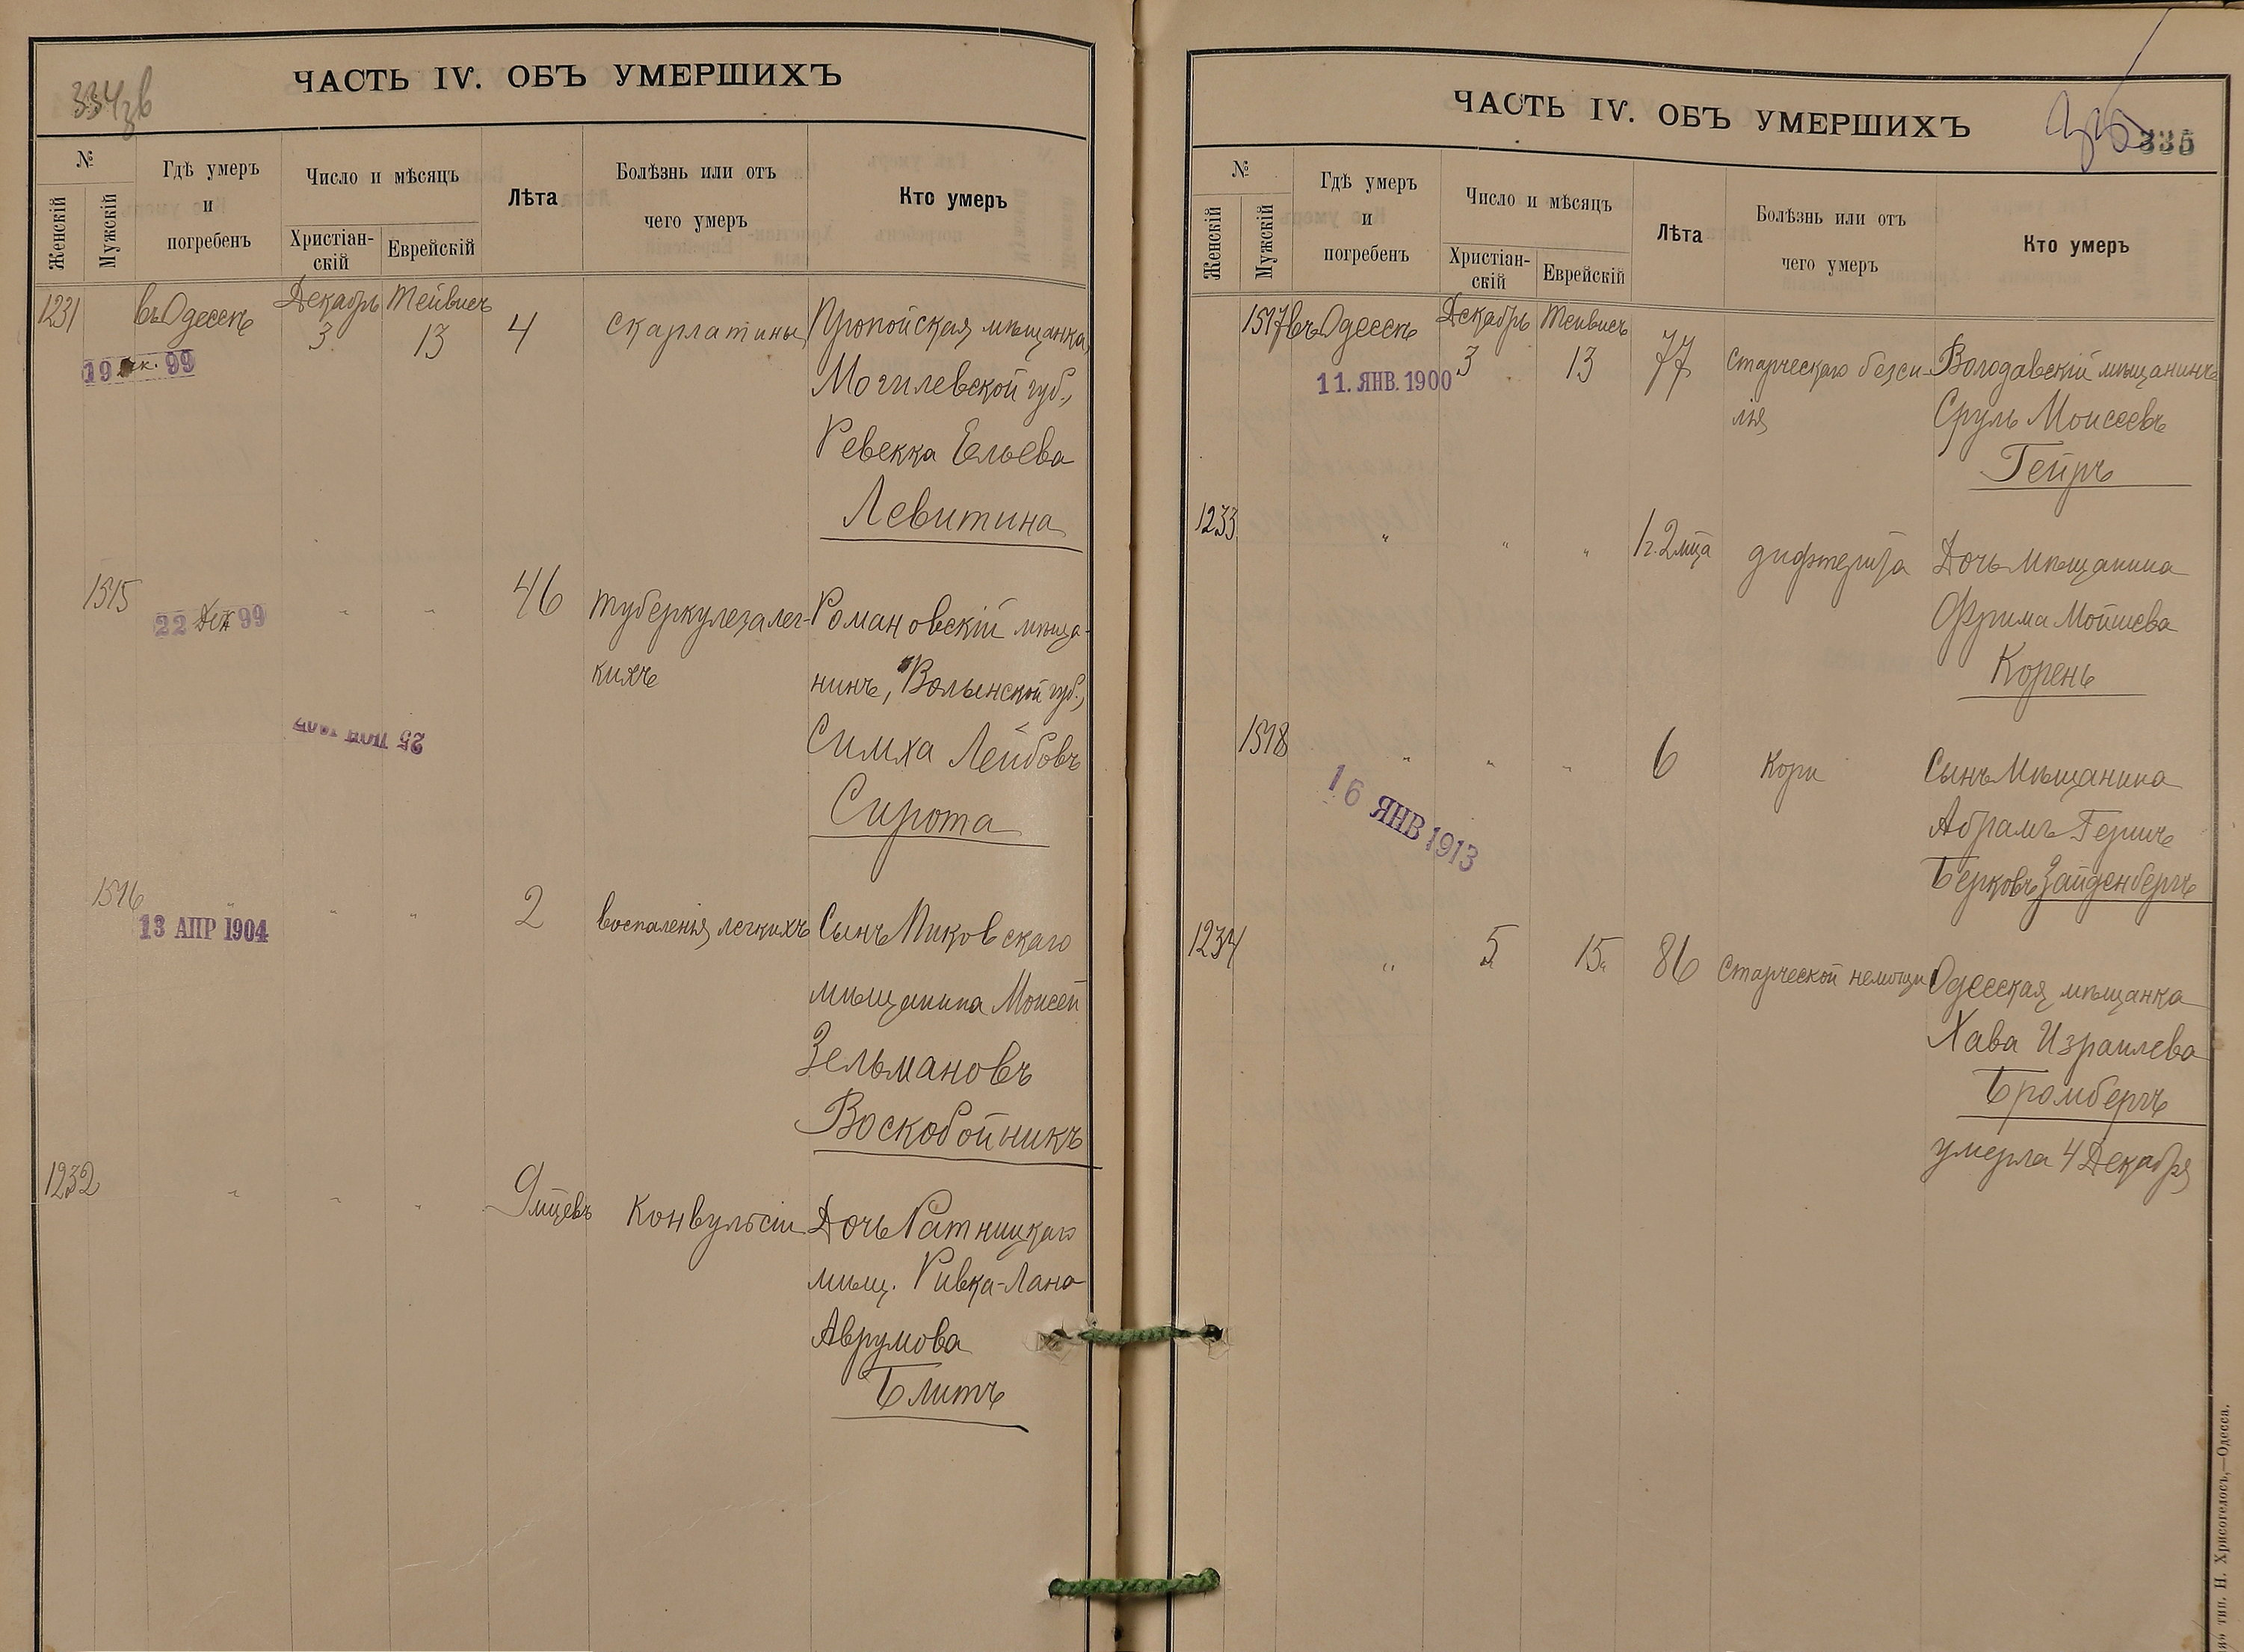 334
ЧАСТЬ IV. ОБЪ УМЕРШИХЪ
№
Женскій
Мужскій
Гдѣ умеръ
и
погребенъ
Число и мѣсяцъ
Христіан-
скій
Еврейскій
Лѣта
Болѣзнь или отъ
чего умеръ
Кто умеръ
1231 въ Одессѣ Декабрь 3 Тейвисъ 13 4 скарлатины Пропойская мѣщанка,
Могилевской губ.,
Ревекка Ельева
Левитина
19 Дек. 99
1515 " " 46 туберкулеза лег- Романовскій мѣща-
кихъ нинъ, Волынской губ.,
Симха Лейбовъ
Сирота
22 Дек 99
25
1516 " " " 2 воспаленія легкихъ Сынъ Пиковскаго
мѣщанина Моисей
Зельмановъ
Воскобойникъ
13 АПР 1904
1232 " " " 9 мцевъ Конвульсіи Дочь Ратницкаго
мѣщ. Ривка-Лана
Аврумова
Блитъ
ЧАСТЬ IV. ОБЪ УМЕРШИХЪ
335
№
Женскій
Мужскій
Гдѣ умеръ
и
погребенъ
Число и мѣсяцъ
Христіан-
скій
Еврейскій
Лѣта
Болѣзнь или отъ
чего умеръ
Кто умеръ
1517 въ Одессѣ Декабрь 3 Тейвисъ 13 77 Старческаго безси- Володавскій мѣщанинъ
лія Сруль Моисеевъ
Гейръ
11. ЯНВ. 1900
1233 " " " 1 г. 2 мца дифтерита Дочь мѣщанина
Фрима Мойшева
Корень
1518 " " " 6 Кори Сынъ Мѣщанина
Абрамъ Гершъ
Берковъ Зайденбергъ
16 ЯНВ 1913
1234 " 5 15 86 Старческой немощи Одесская мѣщанка
Хава Израилева
Бромбергъ
умерла 4 Декабря
тип. Н. Хрисогелосъ,—Одесса.